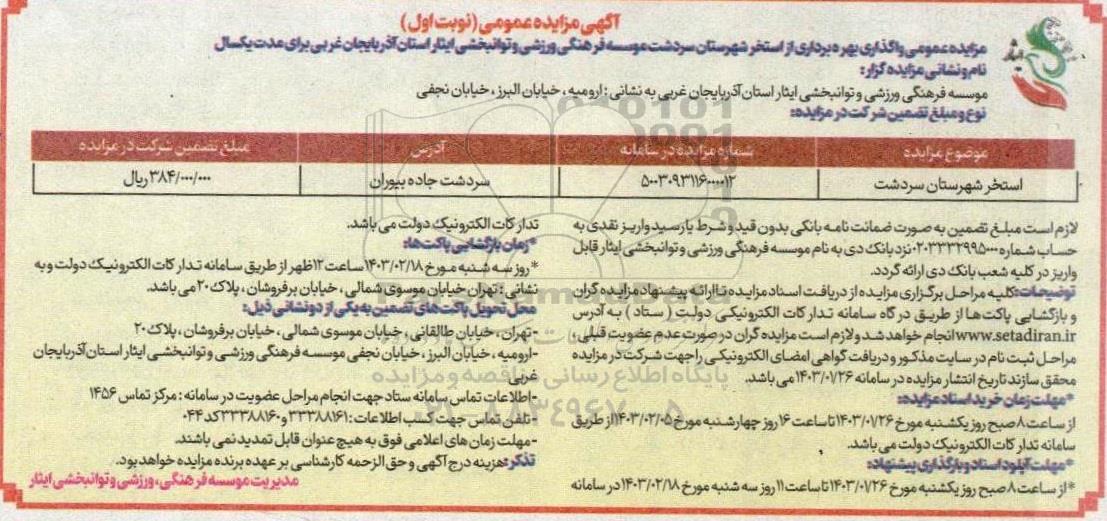 آگهی مزایده عمومی (نوبت اول)
مزایده عمومی واگذاری بهره‌برداری از استخر شهرستان سردشت موسسه فرهنگی ورزشی و توانبخشی ایثار استان آذربایجان غربی برای مدت یکسال
نام و نشانی مزایده گزار:
موسسه فرهنگی ورزشی و توانبخشی ایثار استان آذربایجان غربی به نشانی: ارومیه، خیابان البرز، خیابان نجفی
نوع و مبلغ تضمین شرکت در مزایده:
موضوع مزایده شماره مزایده در سامانه آدرس مبلغ تضمین شرکت در مزایده
استخر شهرستان سردشت ۵۰۰۳۰۹۳۱۱۶۰۰۰۰۱۲ سردشت جاده بیوران ۳۸۴/۰۰۰/۰۰۰ ریال
لازم است مبلغ تضمین به صورت ضمانت نامه بانکی بدون قید و شرط یا رسید واریز نقدی به
حساب شماره ۰۲۰۳۳۳۲۹۹۵۰۰۰ نزد بانک دی به نام موسسه فرهنگی ورزشی و توانبخشی ایثار قابل
واریز در کلیه شعب بانک دی ارائه گردد.
توضیحات: کلیه مراحل برگزاری مزایده از دریافت اسناد مزایده تا ارائه پیشنهاد مزایده گران
و بازگشایی پاکت‌ها از طریق درگاه سامانه تدارکات الکترونیکی دولت (ستاد) به آدرس
www.setadiran.ir انجام خواهد شد و لازم است مزایده گران در صورت عدم عضویت قبلی،
مراحل ثبت نام در سایت مذکور و دریافت گواهی امضای الکترونیکی را جهت شرکت در مزایده
محقق سازند تاریخ انتشار مزایده در سامانه ۱۴۰۳/۰۱/۲۶ می باشد.
*مهلت زمان خرید اسناد مزایده:
از ساعت ۸ صبح روز یکشنبه مورخ ۱۴۰۳/۰۱/۲۶ تا ساعت ۱۶ روز چهارشنبه مورخ ۱۴۰۳/۰۲/۰۵ از طریق
سامانه تدارکات الکترونیک دولت می باشد.
*مهلت آپلود اسناد و بارگذاری پیشنهاد:
*از ساعت ۸ صبح روز یکشنبه مورخ ۱۴۰۳/۰۱/۲۶ تا ساعت ۱۱ روز سه شنبه مورخ ۱۴۰۳/۰۲/۱۸ در سامانه
تدارکات الکترونیک دولت می باشد.
*زمان بازگشایی پاکت‌ها:
*روز سه شنبه مورخ ۱۴۰۳/۰۲/۱۸ ساعت ۱۲ ظهر از طریق سامانه تدارکات الکترونیک دولت و به
نشانی: تهران خیابان موسوی شمالی، خیابان برفروشان، پلاک ۲۰ می باشد.
محل تحویل پاکت‌های تضمین به یکی از دو نشانی ذیل:
-تهران، خیابان طالقانی، خیابان موسوی شمالی، خیابان برفروشان، پلاک ۲۰
-ارومیه، خیابان البرز، خیابان نجفی موسسه فرهنگی ورزشی و توانبخشی ایثار استان آذربایجان
غربی
-اطلاعات تماس سامانه ستاد جهت انجام مراحل عضویت در سامانه: مرکز تماس ۱۴۵۶
-تلفن تماس جهت کسب اطلاعات: ۳۳۳۸۸۱۶۱ و ۳۳۳۸۸۱۶۰ کد ۰۴۴
-مهلت زمان های اعلامی فوق به هیچ عنوان قابل تمدید نمی باشند.
تذکر: هزینه درج آگهی و حق الزحمه کارشناسی بر عهده برنده مزایده خواهد بود.
مدیریت موسسه فرهنگی، ورزشی و توانبخشی ایثار
پایگاه اطلاع رسانی مناقصه و مزایده